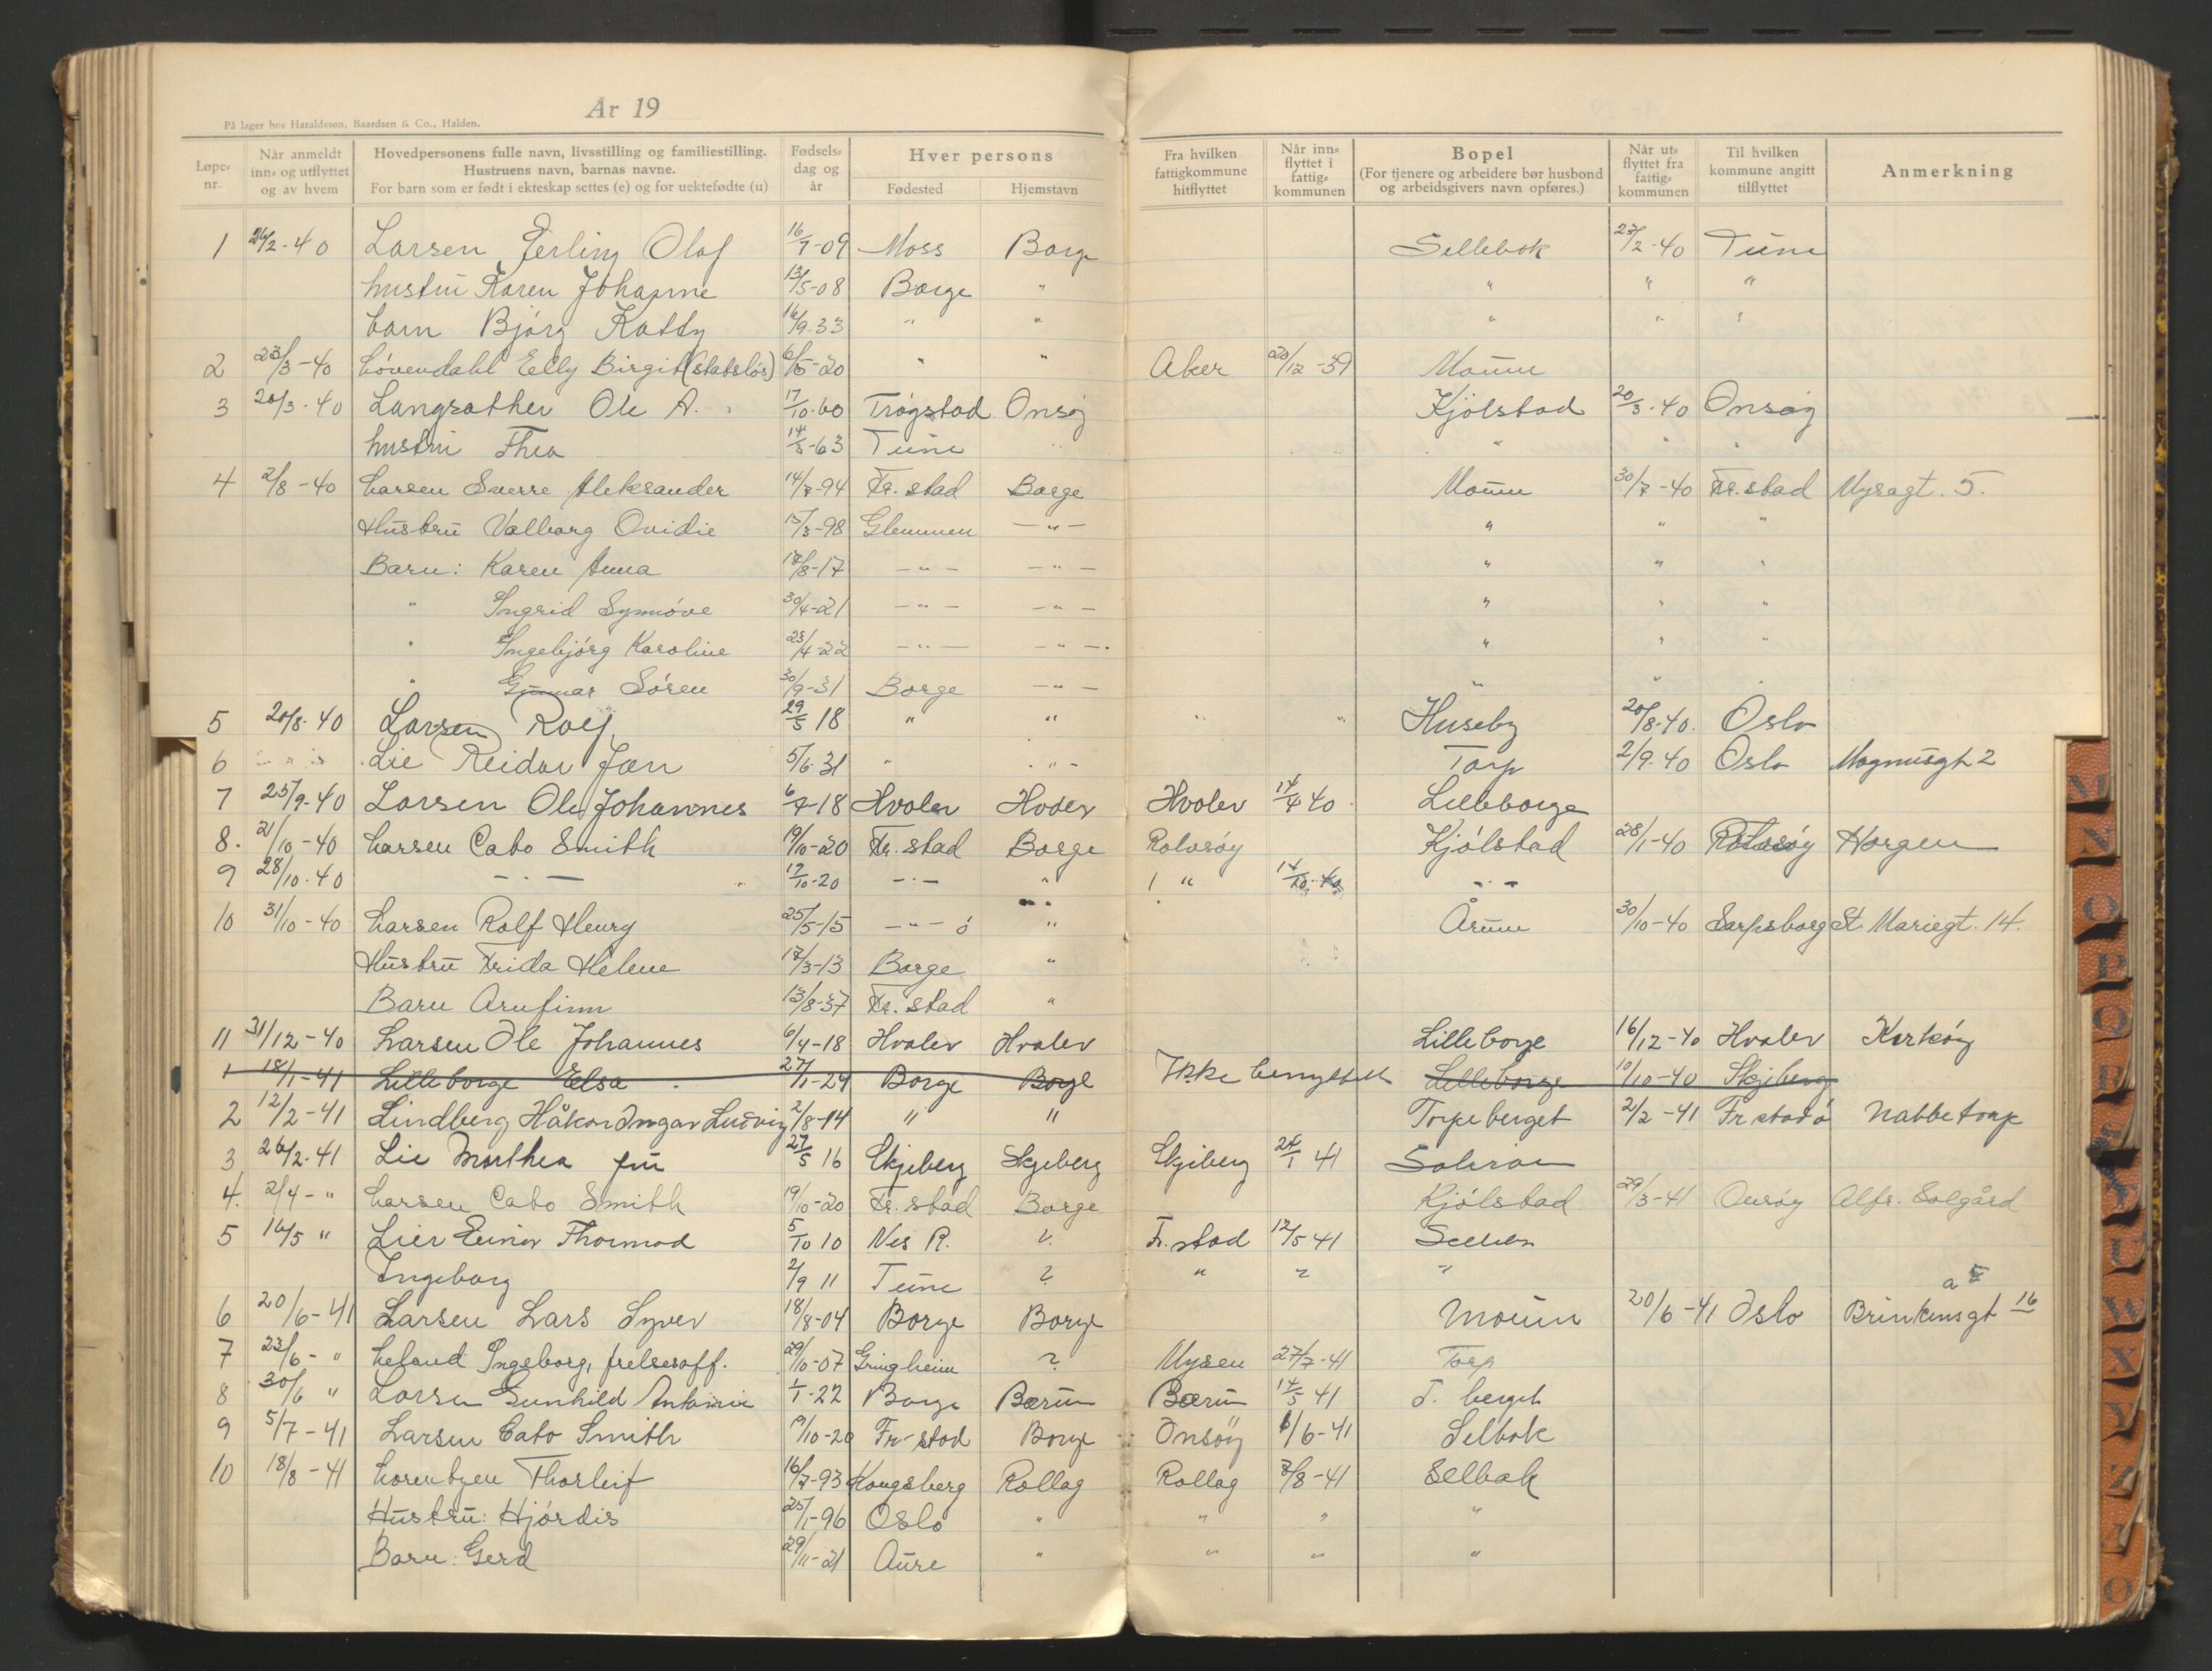 År 19
På lager hos Haraldssøn, Baardsen & Co., Halden.
Løpe-nr. Når anmeldt inn- og utflyttet og av hvem Hovedpersonens fulle navn, livsstilling og familiestilling. Hustruens navn, barnas navne. For barn som er født i ekteskap settes (e) og for uektefødte (u) Fødsels-dag og år Hver persons Fødested Hjemstavn Fra hvilken fattigkommune hitflyttet Når inn-flyttet i fattig-kommunen Bopel (For tjenere og arbeidere bør husbond og arbeidsgivers navn opføres.) Når ut-flyttet fra fattig-kommunen Til hvilken kommune angitt tilflyttet Anmerkning
1 26/2-40 Larsen Erling Olaf 16/7-09 Moss Borge Sellebok 23/2-40 Tune
hustru Karen Johanne 13/5-08 Borge " " " "
barn Bjørg Katty 16/9-33 " " " " "
2 23/3-40 Løvendahl Elly Birgit (statsløs) 6/5-20 " " Aker 20/12-39 Moum
3 20/3-40 Langsæther Ole A. 17/10-60 Trøgstad Onsøy Kjølstad 20/3-40 Onsøy
hustru Thea 14/8-63 Tune " " " "
4 2/8-40 Larsen Sverre Aleksander 14/7-94 Fr.stad Borge Moum 30/7-40 Fr.stad Myragt. 5.
Hustru Valborg Ovidie 15/3-98 Glemmen -"- " " "
Barn: Karen Anna 18/8-17 -"- -"- " " "
" Ingrid Synnøve 30/4-21 -"- -"- " " "
" Ingebjørg Karoline 23/4-22 -"- -"- " " "
" Gunnar Søren 30/9-31 Borge -"- " " "
5 20/8-40 Larsen Rolf 29/5 18 " " " " Huseby 20/8-40. Oslo
6 " " " Lie Reidar Jan 5/6-31 " " Torp 2/9-40 Oslo Magnusgt 2
7 25/9-40 Larsen Ole Johannes 6/4-18 Hvaler Hvaler Hvaler 14/4 40 Lilleborge
8. 21/10-40 Larsen Cato Smith 19/10-20 Fr.stad Borge Rolvsøy Kjølstad 28/1-40 Rolvsøy Horgen
9 28/10-40 -"- 19/10-20 -"- " " 14/10-40 -"-
10 31/10-40 Larsen Rolf Henry 25/5-15 -"- ó " Årum 30/10-40 Sarpsborg St. Mariegt. 14.
Hustru Frida Helene 17/3-13 Borge "
Barn Arnfinn 13/8-37 Fr.stad "
11 31/12-40 Larsen Ole Johannes 6/4-18 Hvaler Hvaler Lilleborge 16/12-40 Hvaler Kirkøy
1 18/1-41 Lilleborge Elsa 27/1-24 Borge Borge Ikke benyttet Lilleborge 10/10-40 Skjeberg
2 12/2-41 Lindberg Håkon Ingar Ludvig 2/8-14 " " Torpeberget 2/2-41 Fr.stad ó Nabbetorp
3 26/2-41 Lie Marthea fru 27/5 16 Skjeberg Skjeberg Skjeberg 24/1 41
4. 2/4-" Larsen Cato Smith 19/10-20 Fr.stad Borge Kjølstad 29/3-41 Onsøy Alfr. Solgård
5 16/5 " Lier Einar Thormod 5/10 10 Nes R. ? Fr.stad 12/5 41
Ingeborg 2/9 11 Tune ? " " "
6 20/6-41 Larsen Lars Syver 18/8-04 Borge Borge Moum 20/6-41 Oslo Brinkensgt 16
7 23/6-" Leland Ingeborg, frelsesoff. 29/10-07 ? Mysen 27/7-41 Torp
8 30/6 " Larsen Gunhild Antonie 1/1-22 Borge Bærum Bærum 14/5 41 T. berget
9 5/7-41 Larsen Cato Smith 19/10-20 Fr-stad Borge Onsøy 6/6-41 Selbak
10 18/8-41 Lorentzen Thorleif 16/7-93 Kongsberg Rollag Rollag 8/8-41 Selbak
Hustru: Hjørdis 25/1-96 Oslo " " " "
Barn: Gerd 29/11-21 Aure " " " "